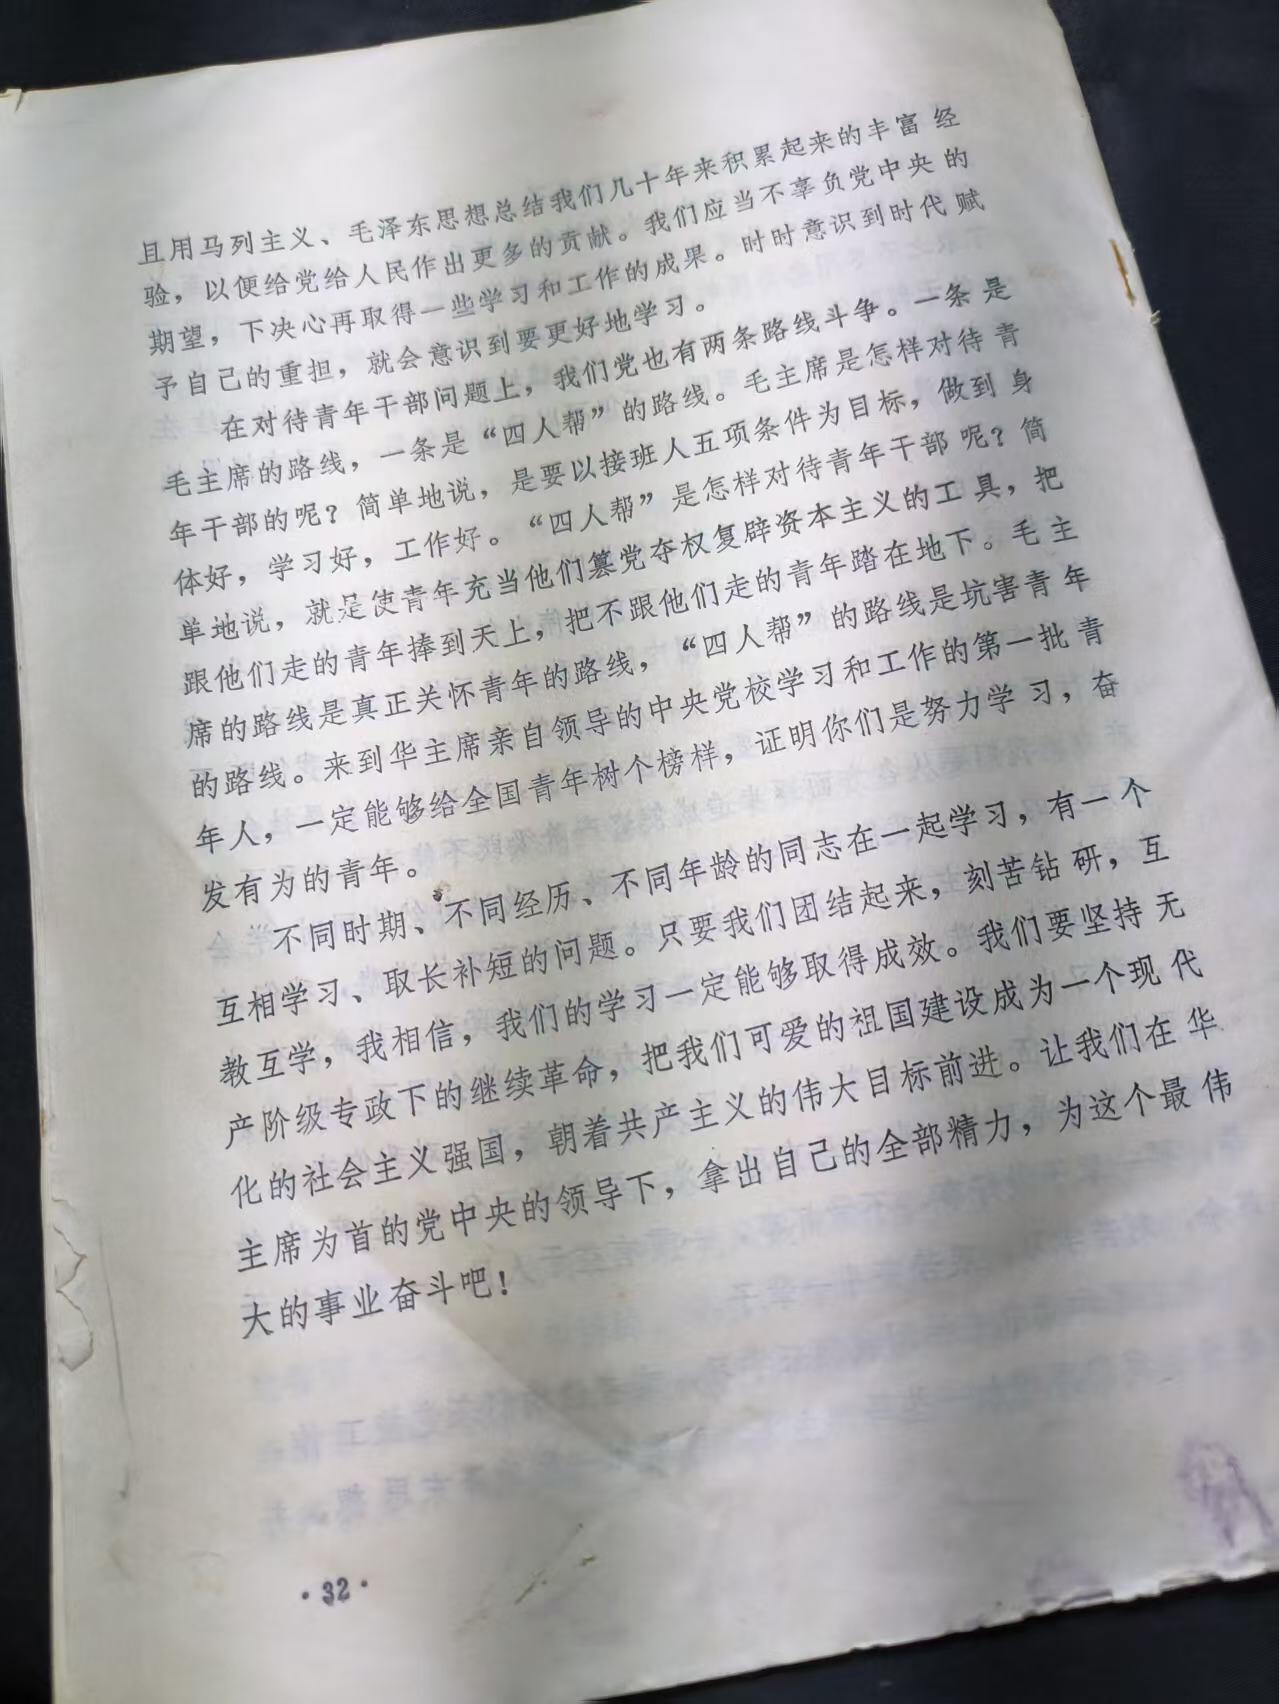 且用马列主义、毛泽东思想总结我们几十年来积累起来的丰富经
验，以便给党给人民作出更多的贡献。我们应当不辜负党中央的
期望，下决心再取得一些学习和工作的成果。时时意识到时代赋
予自己的重担，就会意识到要更好地学习。
在对待青年干部问题上，我们党也有两条路线斗争。一条是
毛主席的路线，一条是“四人帮”的路线。毛主席是怎样对待青
年干部的呢？简单地说，是要以接班人五项条件为目标，做到身
体好，学习好，工作好。“四人帮”是怎样对待青年干部呢？简
单地说，就是使青年充当他们篡党夺权复辟资本主义的工具，把
跟他们走的青年捧到天上，把不跟他们走的青年踏在地下。毛主
席的路线是真正关怀青年的路线，“四人帮”的路线是坑害青年
的路线。来到华主席亲自领导的中央党校学习和工作的第一批青
年人，一定能够给全国青年树个榜样，证明你们是努力学习，奋
发有为的青年。
不同时期、不同经历、不同年龄的同志在一起学习，有一个
互相学习、取长补短的问题。只要我们团结起来，刻苦钻研，互
教互学，我相信，我们的学习一定能够取得成效。我们要坚持无
产阶级专政下的继续革命，把我们可爱的祖国建设成为一个现代
化的社会主义强国，朝着共产主义的伟大目标前进。让我们在华
主席为首的党中央的领导下，拿出自己的全部精力，为这个最伟
大的事业奋斗吧！
·32·